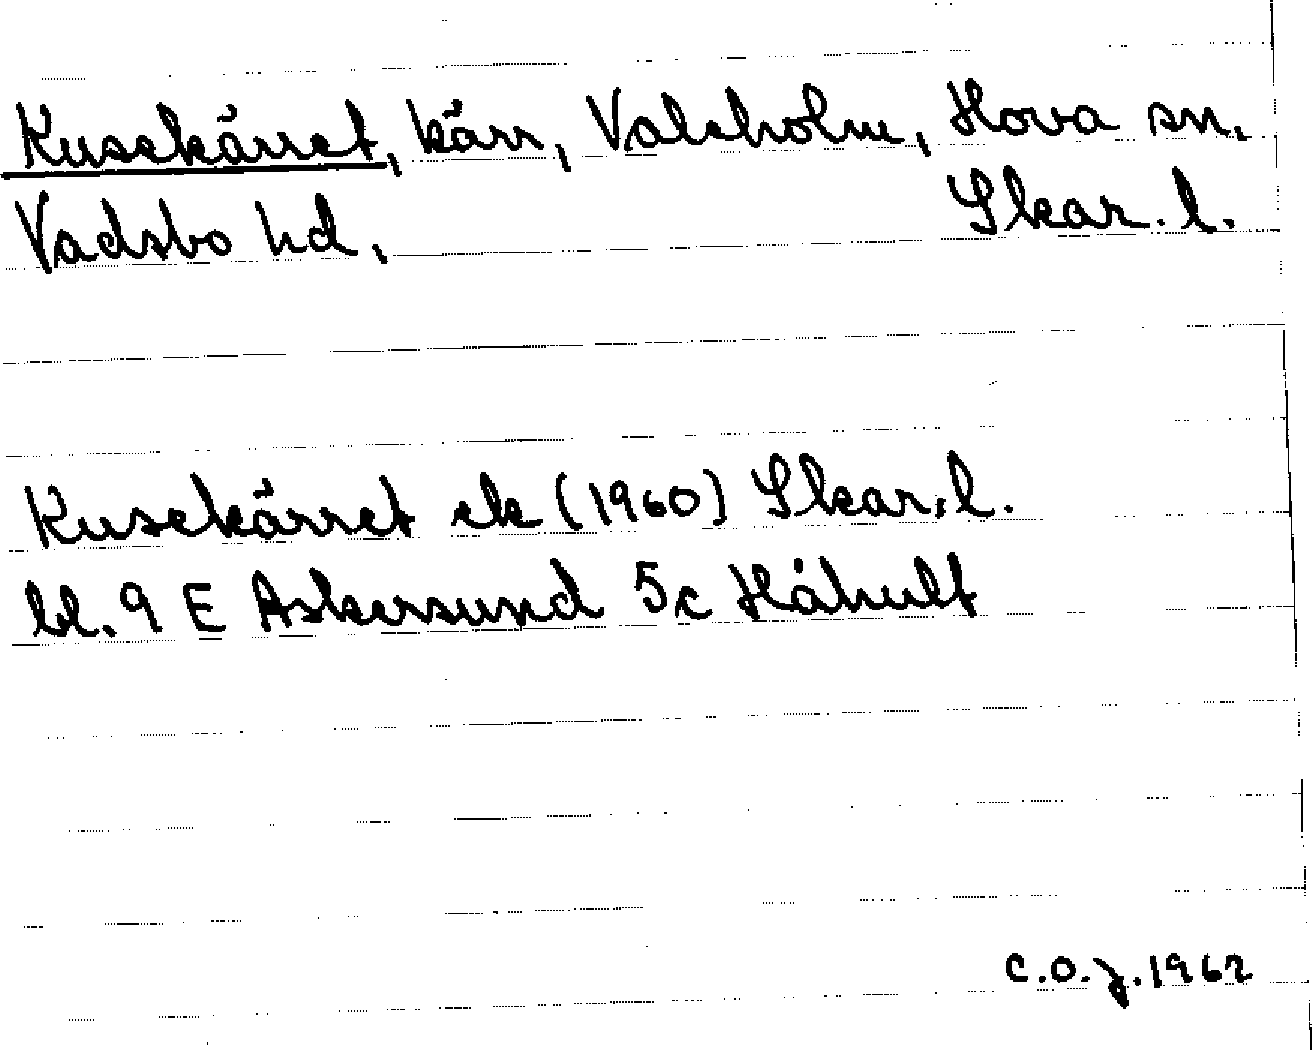 Kusekärret, kärr, Valeholm, Hova sn.
Vadsbo hd, Skar. l.
Kusekärret ek (1960) Skar. l.
bl. 9 E Askersund 5c Håhult
C.O.J. 1962